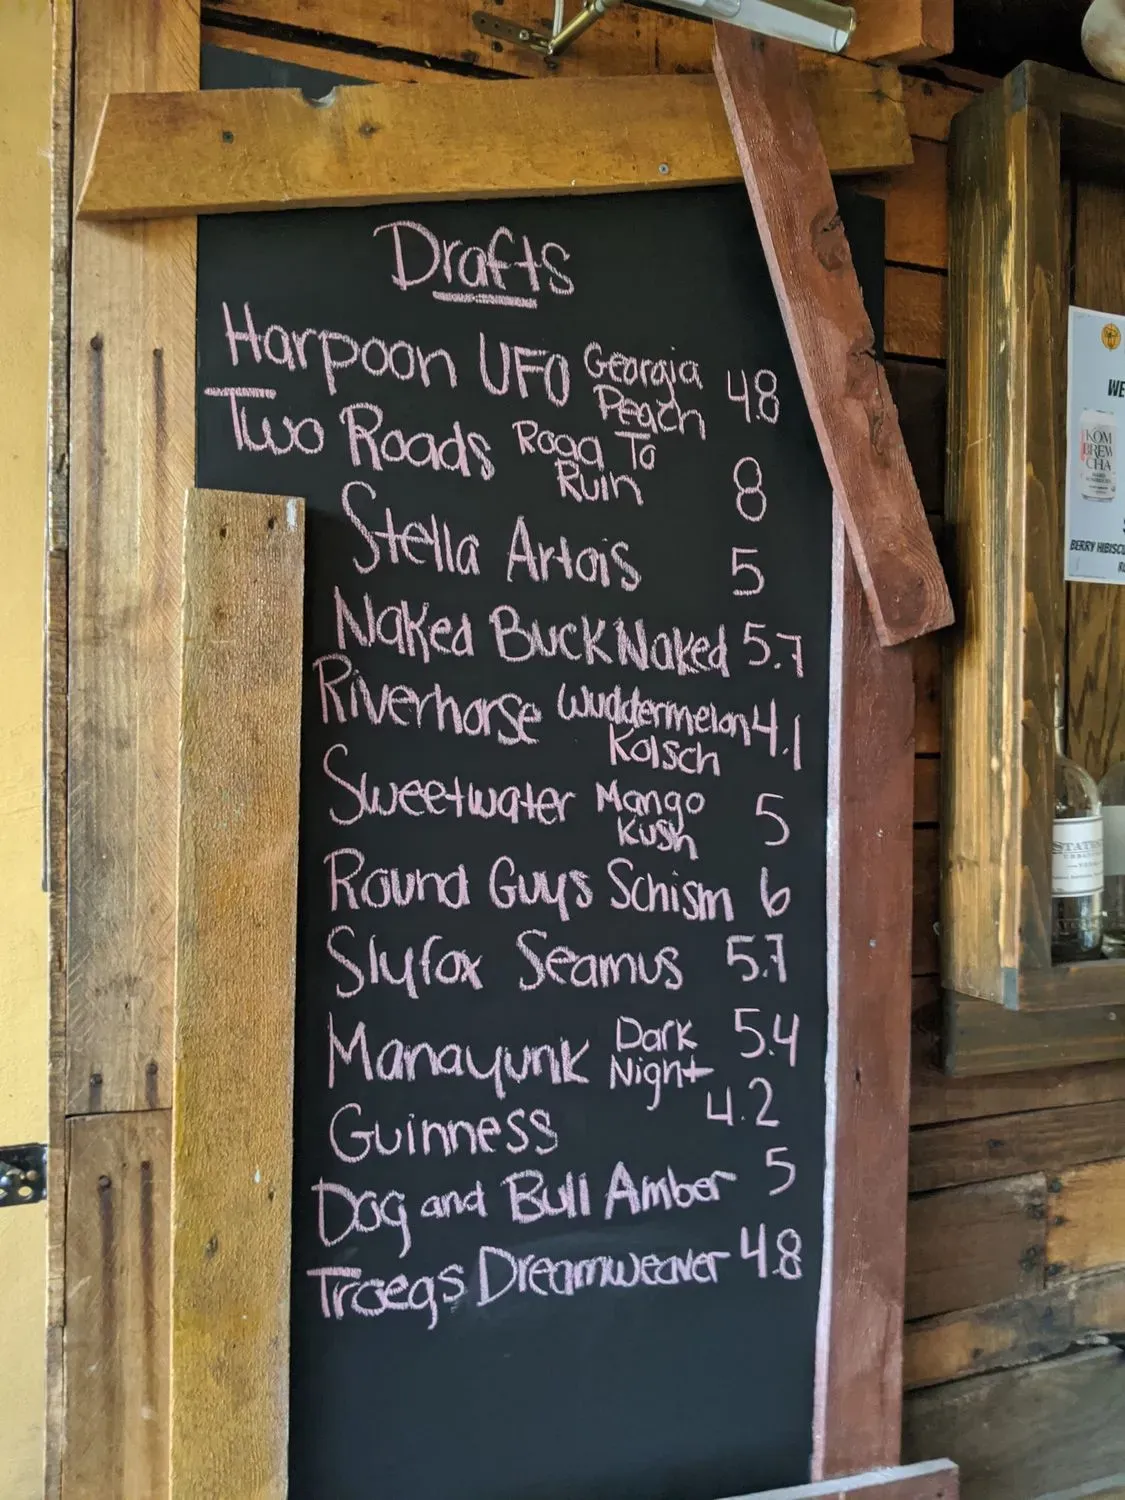 Drafts
Harpoon UFO Georgia Peach 4.8
Two Roads Roaa To Ruin 8
Stella Artois 5
Naked Buck Naked 5.7
Riverhorse Wuddermelon Kolsch 4.1
Sweetwater Mango Kush 5
Round Guys Schism 6
Slyfox Seamus 5.7
Manayunk Dark Night 5.4
Guinness 4.2
Dog and Bull Amber 5
Troegs Dreamweaver 4.8
WE
KOM
BREW
CHA
BERRY HIBISCU
STATES